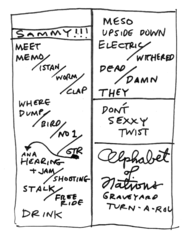 SAMMY!!!
MEET
MEMO/
ISTAN/
WORM/
CLAP
WHERE
DUMP/
BIRD/
NO 1
GTR
ANA
HEARING
+ JAM/
SHOOTING
STALK/
FREE
RIDE
DRINK
MESO
UPSIDE DOWN
ELECTRIC/
WITHERED
DEAD/
DAMN
THEY
DON'T
SEXXY
TWIST
Alphabet
of
Nations
GRAVEYARD
TURN-A-ROU